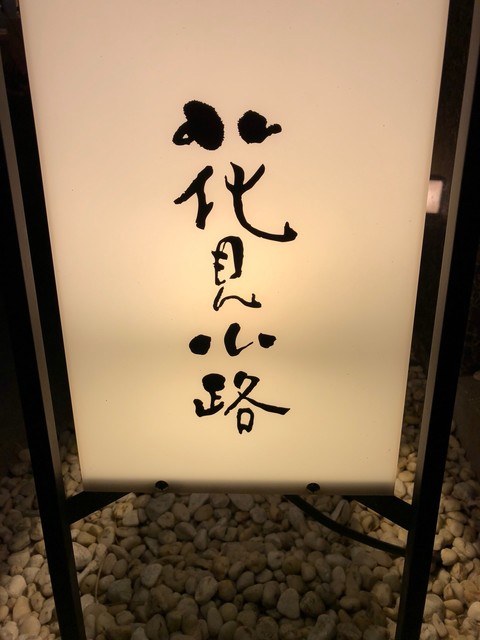 花見小路